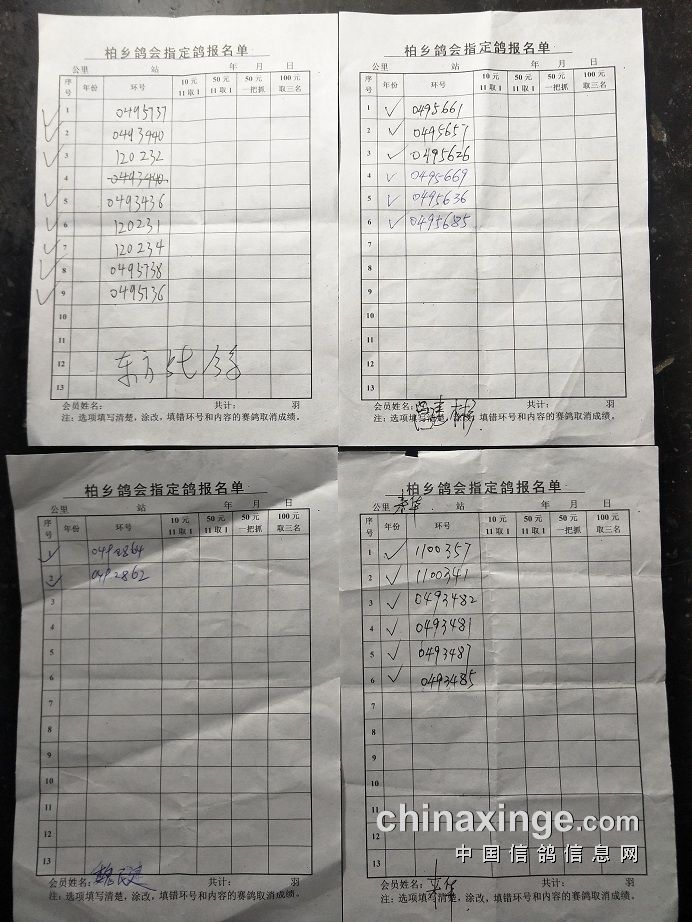 柏乡鸽会指定鸽报名单
公里 站 年 月 日
序号 年份 环号 10元11取1 50元11取1 50元一把抓 100元取三名
1 0495737
2 0493440
3 120232
4 0493440
5 0493436
6 120231
7 120234
8 0495738
9 0495736
10
11
12
13
会员姓名: 共计: 羽
注:选项填写清楚,涂改,填错环号和内容的赛鸽取消成绩。
柏乡鸽会指定鸽报名单
公里 站 年 月 日
序号 年份 环号 10元11取1 50元11取1 50元一把抓 100元取三名
1 ✓ 0495661
2 ✓ 0495657
3 ✓ 0495626
4 ✓ 0495669
5 ✓ 0495636
6 ✓ 0495685
7
8
9
10
11
12
13
会员姓名: 共计: 羽
注:选项填写清楚,涂改,填错环号和内容的赛鸽取消成绩。
柏乡鸽会指定鸽报名单
公里 站 年 月 日
序号 年份 环号 10元11取1 50元11取1 50元一把抓 100元取三名
1 0492864
2 0492862
3
4
5
6
7
8
9
10
11
12
13
会员姓名: 共计: 羽
注:选项填写清楚,涂改,填错环号和内容的赛鸽取消成绩。
柏乡鸽会指定鸽报名单
公里 站 年 月 日
序号 年份 环号 10元11取1 50元11取1 50元一把抓 100元取三名
1 ✓ 1100357
2 ✓ 1100341
3 ✓ 0493482
4 ✓ 0493481
5 ✓ 0493487
6 ✓ 0493485
7
8
9
10
11
12
13
会员姓名: 共计: 羽
注:选项填写清楚,涂改,填错环号和内容的赛鸽取消成绩。
chinaxinge.com
中国信鸽信息网